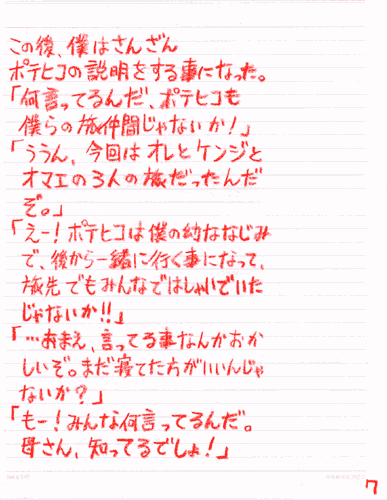 この後、僕はさんざん
ポテヒコの説明をする事になった。
「何言ってるんだ、ポテヒコも
僕らの旅仲間じゃないか！」
「ううん、今回はオレとケンジと
オマエの3人の旅だったんだ
ぞ。」
「えー！ポテヒコは僕の幼ななじみ
で、後から一緒に行く事になって、
旅先でもみんなではしゃいでいた
じゃないか!!」
「…おまえ、言ってる事なんかおか
しいぞ。まだ寝てた方がいいんじゃ
ないか？」
「もー！みんな何言ってるんだ。
母さん、知ってるでしょ！」
7